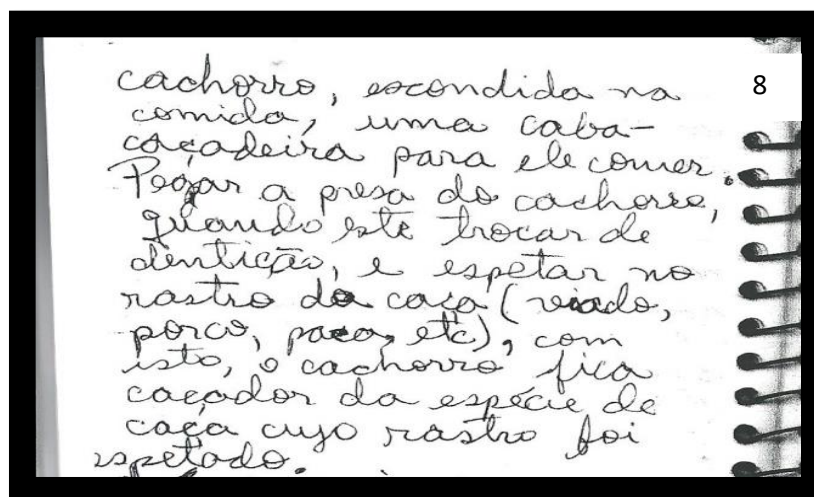 8
cachorro, escondida na
comida, uma caba-
caçadeira para ele comer.
Pegar a presa do cachorro,
quando este trocar de
dentição, e espetar no
rastro da caça (viado,
porco, paca, etc), com
isto, o cachorro fica
caçador da espécie de
caça cujo rastro foi
espetado.